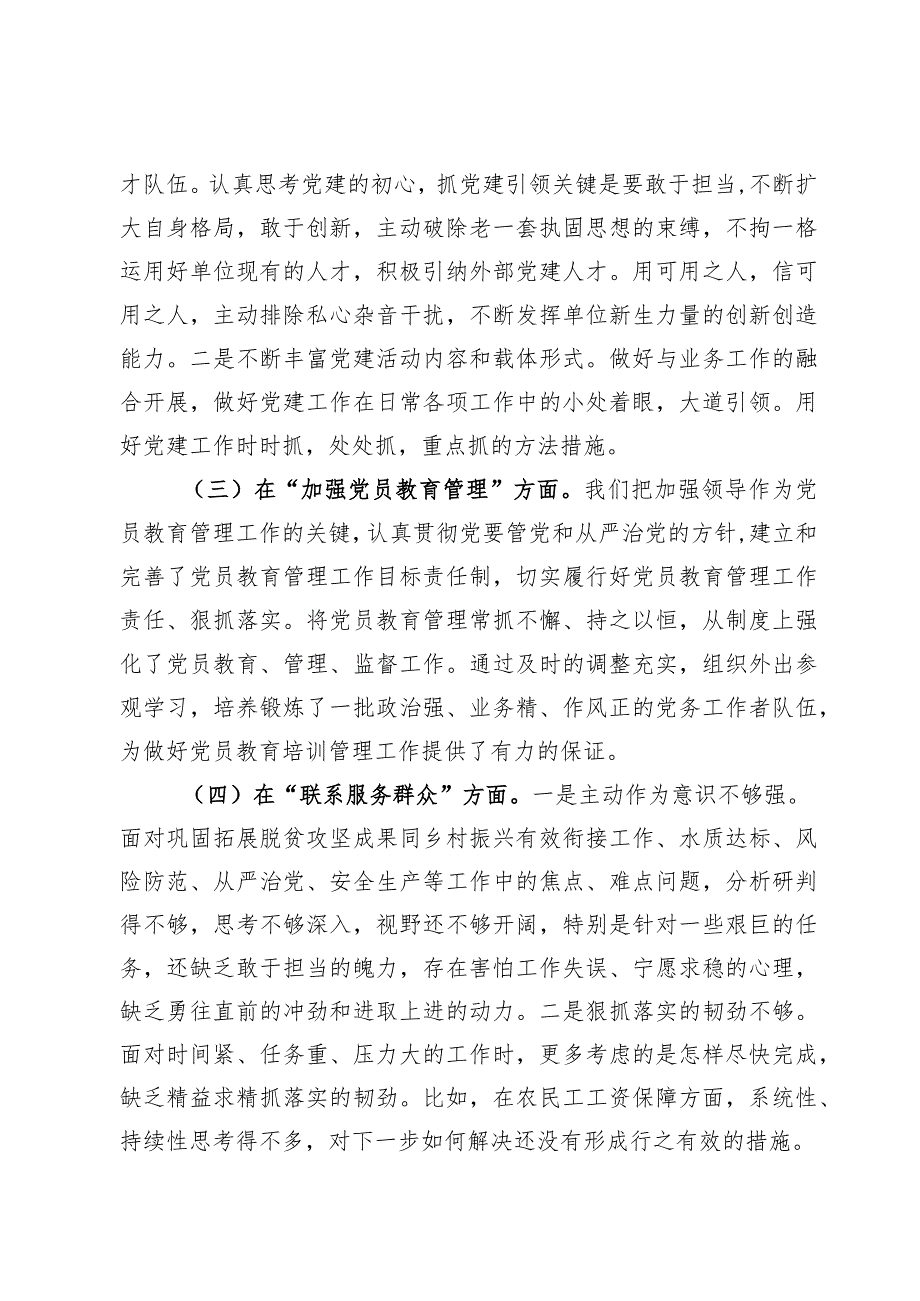 才队伍。认真思考党建的初心，抓党建引领关键是要敢于担当,不断扩
大自身格局，敢于创新，主动破除老一套执固思想的束缚，不拘一格
运用好单位现有的人才，积极引纳外部党建人才。用可用之人，信可
用之人，主动排除私心杂音干扰，不断发挥单位新生力量的创新创造
能力。二是不断丰富党建活动内容和载体形式。做好与业务工作的融
合开展，做好党建工作在日常各项工作中的小处着眼，大道引领。用
好党建工作时时抓，处处抓，重点抓的方法措施。
（三）在“加强党员教育管理”方面。我们把加强领导作为党
员教育管理工作的关键，认真贯彻党要管党和从严治党的方针,建立和
完善了党员教育管理工作目标责任制，切实履行好党员教育管理工作
责任、狠抓落实。将党员教育管理常抓不懈、持之以恒，从制度上强
化了党员教育、管理、监督工作。通过及时的调整充实，组织外出参
观学习，培养锻炼了一批政治强、业务精、作风正的党务工作者队伍，
为做好党员教育培训管理工作提供了有力的保证。
（四）在“联系服务群众”方面。一是主动作为意识不够强。
面对巩固拓展脱贫攻坚成果同乡村振兴有效衔接工作、水质达标、风
险防范、从严治党、安全生产等工作中的焦点、难点问题，分析研判
得不够，思考不够深入，视野还不够开阔，特别是针对一些艰巨的任
务，还缺乏敢于担当的魄力，存在害怕工作失误、宁愿求稳的心理，
缺乏勇往直前的冲劲和进取上进的动力。二是狠抓落实的韧劲不够。
面对时间紧、任务重、压力大的工作时，更多考虑的是怎样尽快完成，
缺乏精益求精抓落实的韧劲。比如，在农民工工资保障方面，系统性、
持续性思考得不多，对下一步如何解决还没有形成行之有效的措施。